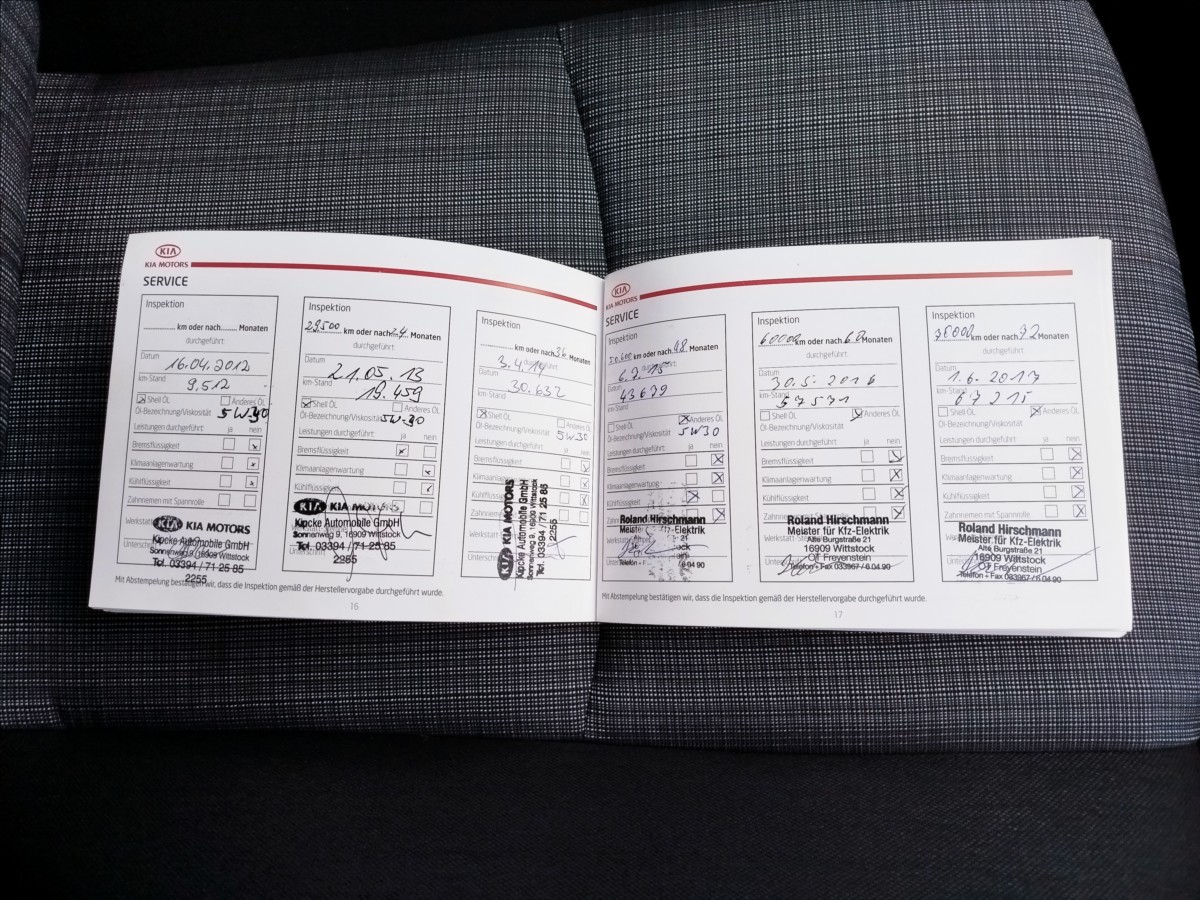 KIA
KIA MOTORS
SERVICE
Inspektion
km oder nach Monaten
durchgeführt
Datum
16.04.2012
km-Stand
9.512
Shell Öl Anderes Öl
Öl-Bezeichnung/Viskosität
Leistungen durchgeführt: ja nein
Bremsflüssigkeit
Klimaanlagenwartung
Kühlflüssigkeit
Zahnriemen mit Spannrolle
KIA KIA MOTORS
Kipcke Automobile GmbH
Sonnenweg 9, 16909 Wittstock
Tel. 03394 / 71 25 85
2255
Inspektion
29.500 km oder nach 24 Monaten
durchgeführt
Datum
21.05.13
km-Stand
19.459
Shell Öl Anderes Öl
Öl-Bezeichnung/Viskosität 5W-30
Leistungen durchgeführt: ja nein
Bremsflüssigkeit
Klimaanlagenwartung
Kühlflüssigkeit
KIA KIA MOTORS
Kipcke Automobile GmbH
Sonnenweg 9, 16909 Wittstock
Tel. 03394 / 71 25 85
2255
Inspektion
km oder nach 36 Monaten
durchgeführt
3.4.14
Datum
30.632
km-Stand
Shell Öl Anderes Öl
Öl-Bezeichnung/Viskosität 5W30
Leistungen durchgeführt: ja nein
Bremsflüssigkeit
Klimaanlagenwartung
KIA KIA MOTORS
Kipcke Automobile GmbH
Sonnenweg 9, 16909 Wittstock
Tel. 03394 / 71 25 85
2255
Mit Abstempelung bestätigen wir, dass die Inspektion gemäß der Herstellervorgabe durchgeführt wurde.
16
KIA
KIA MOTORS
SERVICE
Inspektion
km oder nach 48 Monaten
durchgeführt
Datum
43679
km-Stand
Shell Öl Anderes Öl
Öl-Bezeichnung/Viskosität
5W30
Leistungen durchgeführt: ja nein
Bremsflüssigkeit
Klimaanlagenwartung
Kühlflüssigkeit
Roland Hirschmann
Meister für Kfz-Elektrik
Inspektion
60000 km oder nach 60 Monaten
durchgeführt
Datum
30.5.2016
km-Stand
57571
Shell Öl Anderes Öl
Öl-Bezeichnung/Viskosität
Leistungen durchgeführt: ja nein
Bremsflüssigkeit
Klimaanlagenwartung
Kühlflüssigkeit
Roland Hirschmann
Meister für Kfz-Elektrik
Alte Burgstraße 21
16909 Wittstock
OT Freyenstein
Telefon + Fax 033967 / 6 04 90
Inspektion
km oder nach Monaten
durchgeführt
Datum
1.6.2017
km-Stand
67215
Shell Öl Anderes Öl
Öl-Bezeichnung/Viskosität
Leistungen durchgeführt: ja nein
Bremsflüssigkeit
Klimaanlagenwartung
Kühlflüssigkeit
Zahnriemen mit Spannrolle
Roland Hirschmann
Meister für Kfz-Elektrik
Alte Burgstraße 21
16909 Wittstock
OT Freyenstein
Telefon + Fax 033967 / 6 04 90
Mit Abstempelung bestätigen wir, dass die Inspektion gemäß der Herstellervorgabe durchgeführt wurde.
17